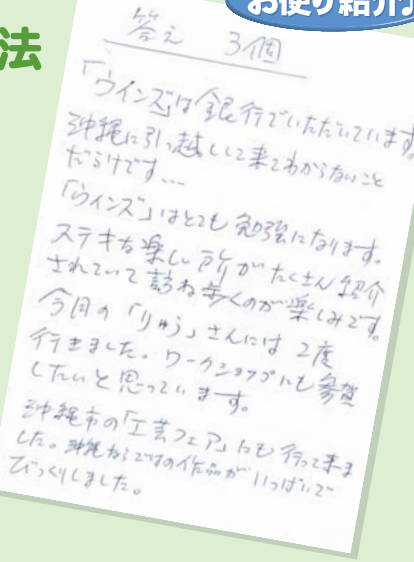 お便り紹介
法
答え 3個
「ウインズ」は銀行でいただいています
沖縄に引っ越しして来てわからないこと
だらけです…
「ウインズ」はとても勉強になります。
ステキな楽しい所がたくさん紹介
されていて訪ね歩くのが楽しみです。
今回の「りゅう」さんには2度
行きました。ワークショップにも参加
したいと思っています。
沖縄市の「工芸フェア」にも行って来ま
した。沖縄ならではの作品がいっぱいで
びっくりしました。